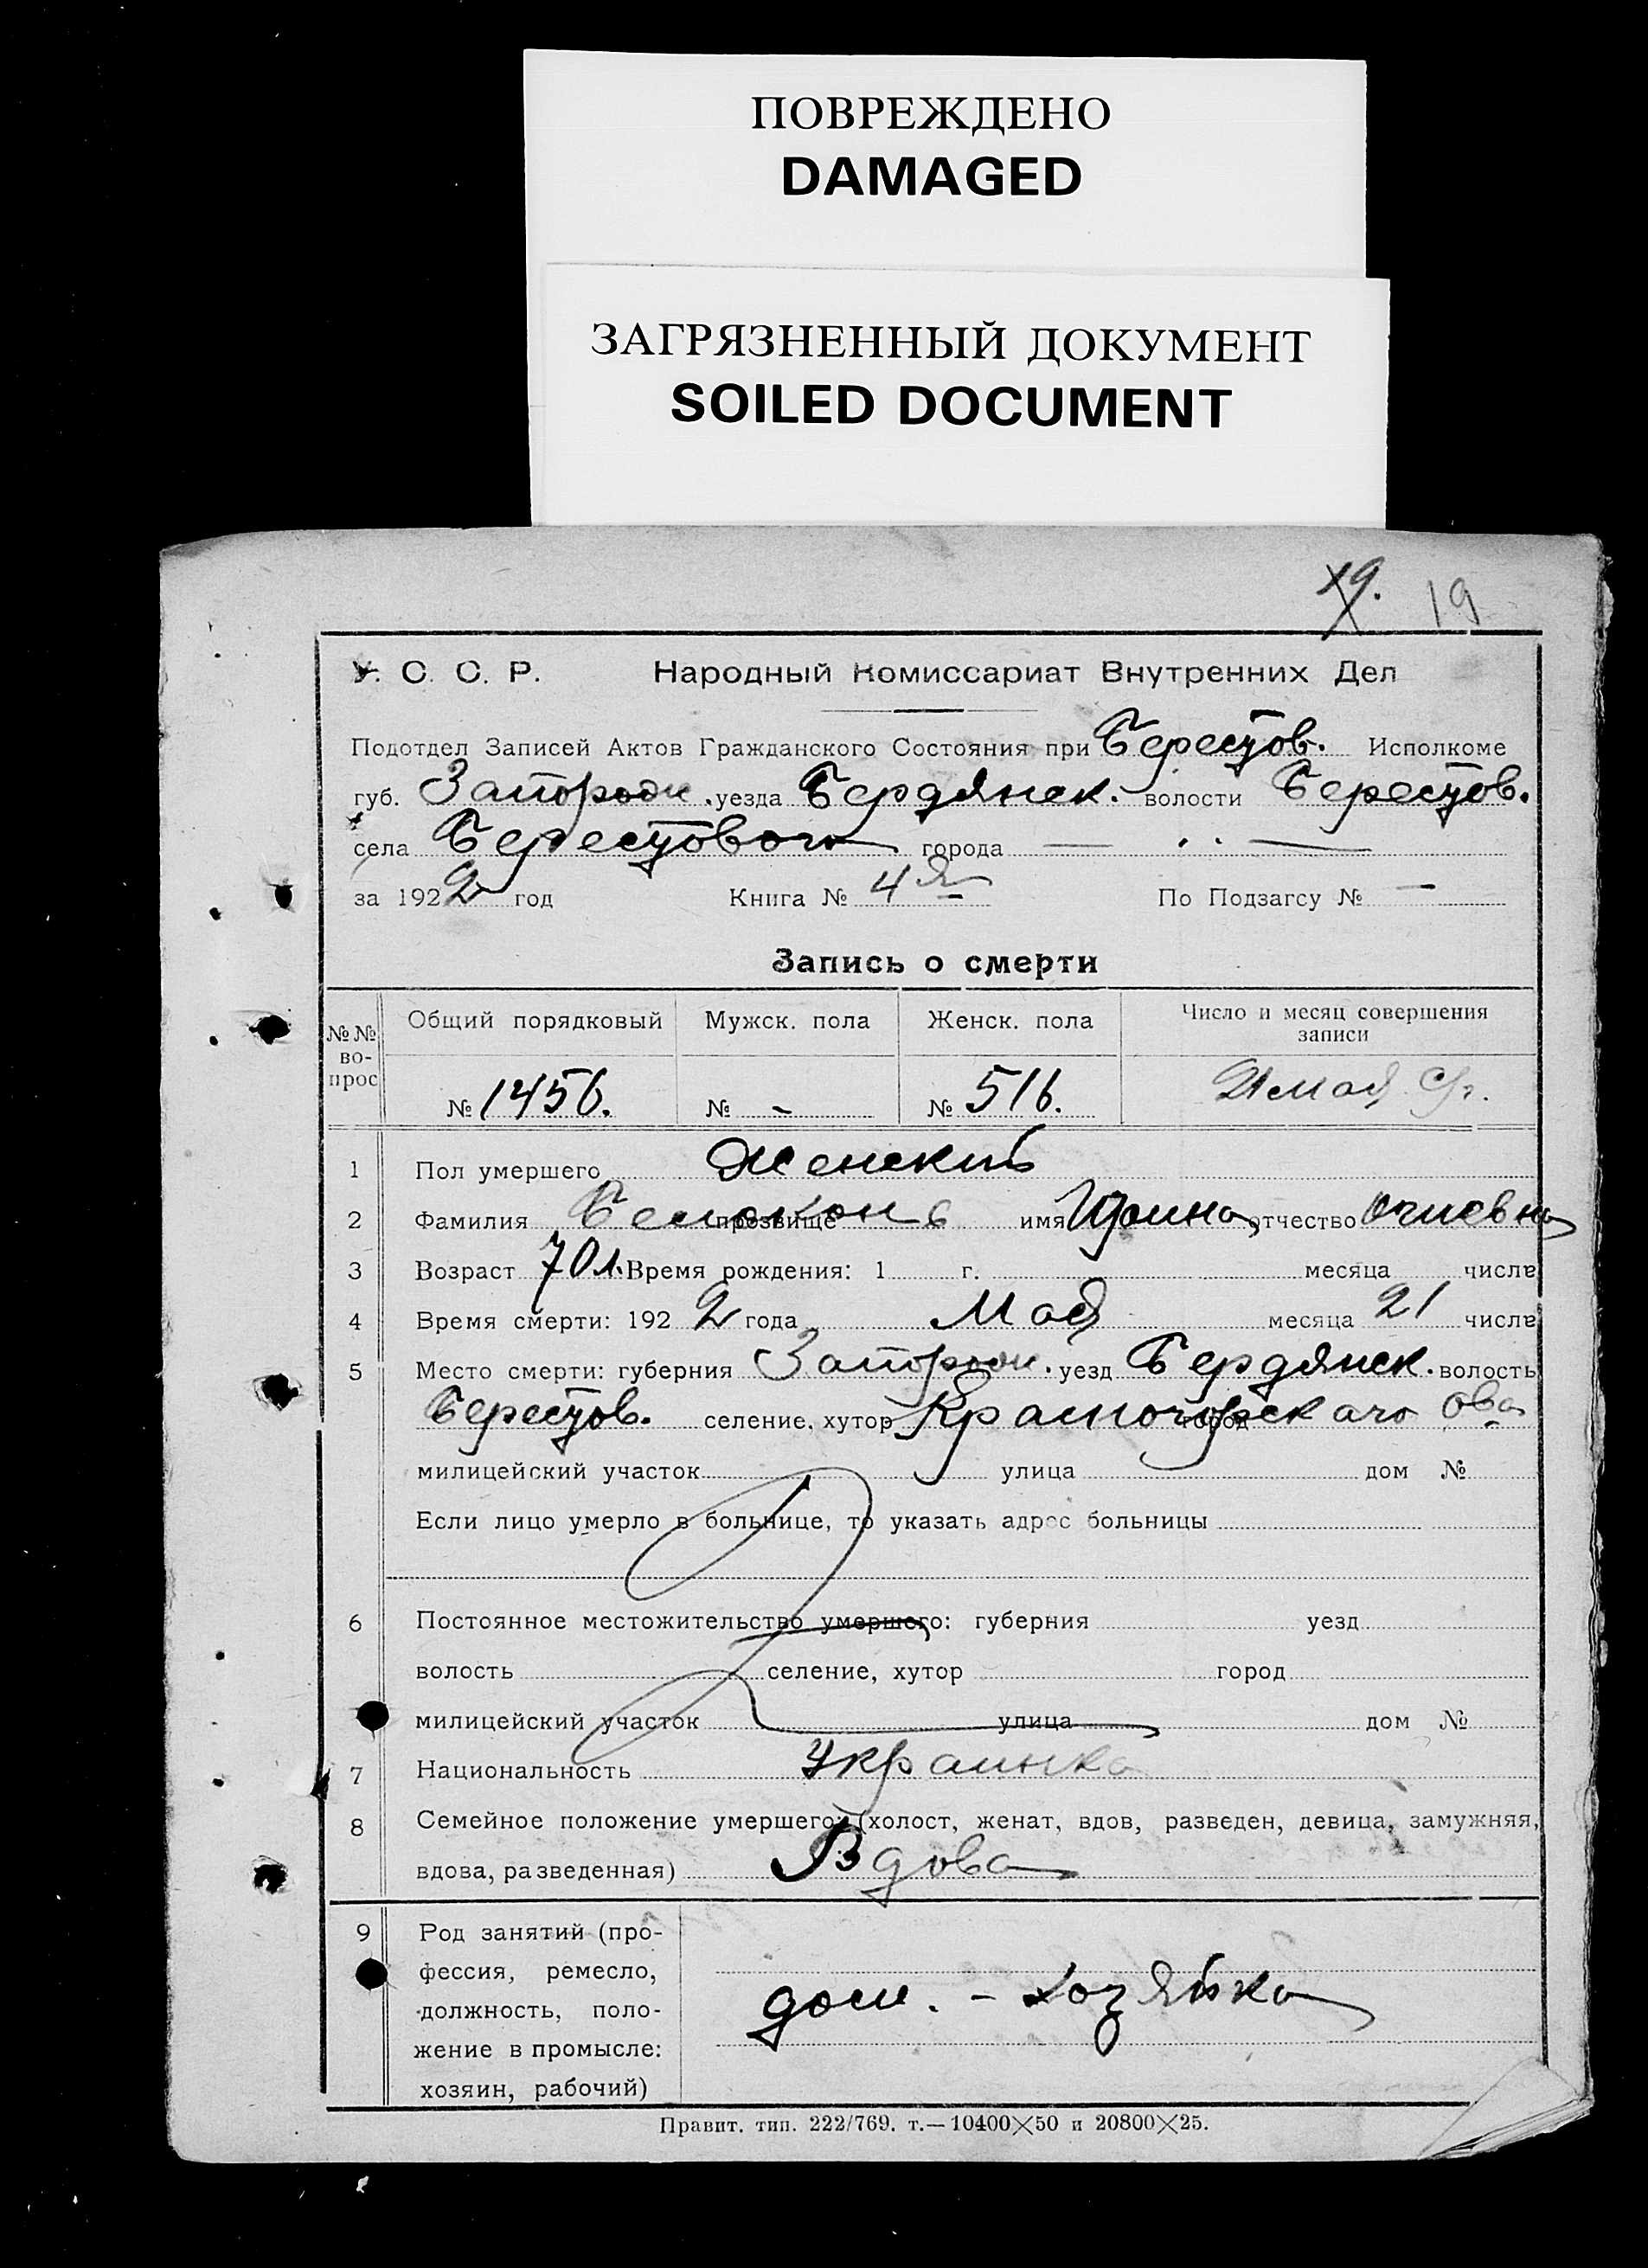 ПОВРЕЖДЕНО
DAMAGED
ЗАГРЯЗНЕННЫЙ ДОКУМЕНТ
SOILED DOCUMENT
19. 19
У. С. С. Р. Народный Комиссариат Внутренних Дел
Подотдел Записей Актов Гражданского Состояния при Берестов. Исполкоме
губ. Запорож. уезда Бердянск. волости Берестов.
села Берестового города —
за 1922 год Книга № 4я По Подзагсу № —
Запись о смерти
№№ во-прос Общий порядковый Мужск. пола Женск. пола Число и месяц совершения записи
№ 1456. № - № 516. 21 мая с/г.
1 Пол умершего Женский
2 Фамилия Белоконь прозвище имя Ирина отчество
3 Возраст 70 л. Время рождения: 1 г. месяца числа
4 Время смерти: 1922 года Мая месяца 21 числа
5 Место смерти: губерния Запорож. уезд Бердянск. волость
Берестов. селение, хутор Красногорскаго город
милицейский участок улица дом №
Если лицо умерло в больнице, то указать адрес больницы
6 Постоянное местожительство умершего: губерния уезд
волость селение, хутор город
милицейский участок улица дом №
7 Национальность Украинка
8 Семейное положение умершего: (холост, женат, вдов, разведен, девица, замужняя,
вдова, разведенная) Вдова
9 Род занятий (про-
фессия, ремесло,
должность, поло-
жение в промысле:
хозяин, рабочий)
дом. - хозяйка
Правит. тип. 222/769. т.—10400×50 и 20800×25.